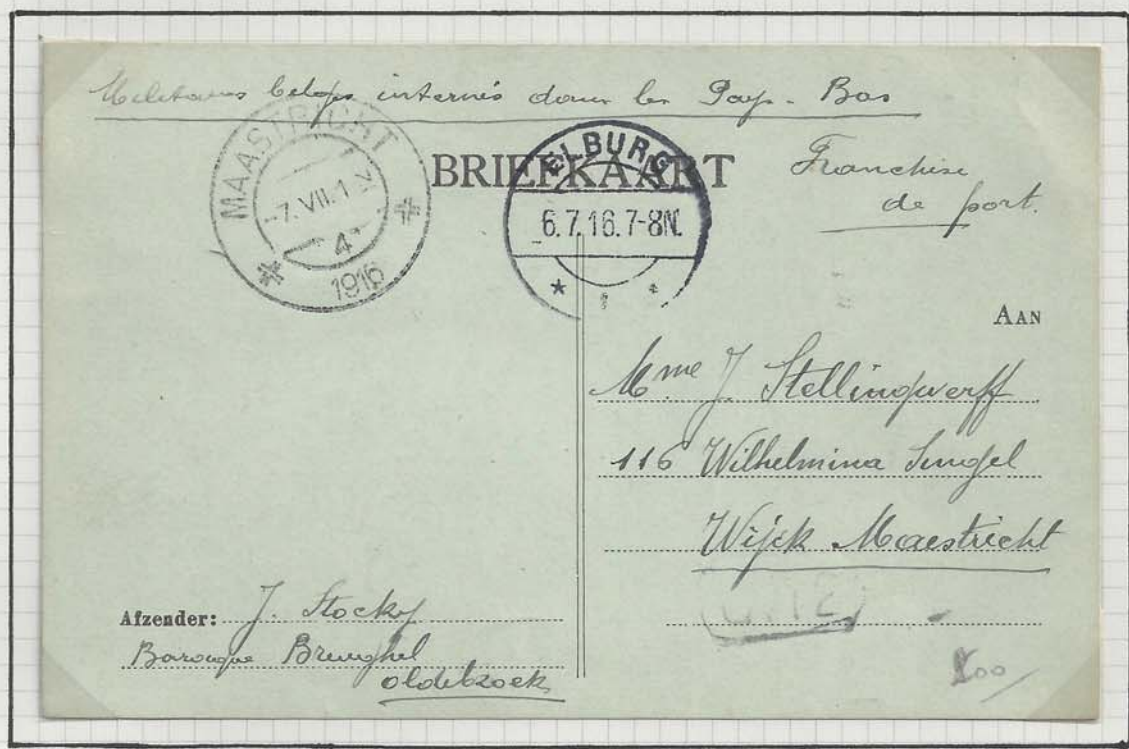 Militaires belges internés dans les Pays-Bas
MAASTRICHT
-7.VII.1
4
1916
BRIEFKAART
ELBURG
6.7.16.7-8N.
Franchise
de port.
AAN
Mme J. Stellingwerff
116 Wilhelmina Singel
Wijck Maestricht
Afzender: J. Stocky
Baraque Breughel
oldebroek